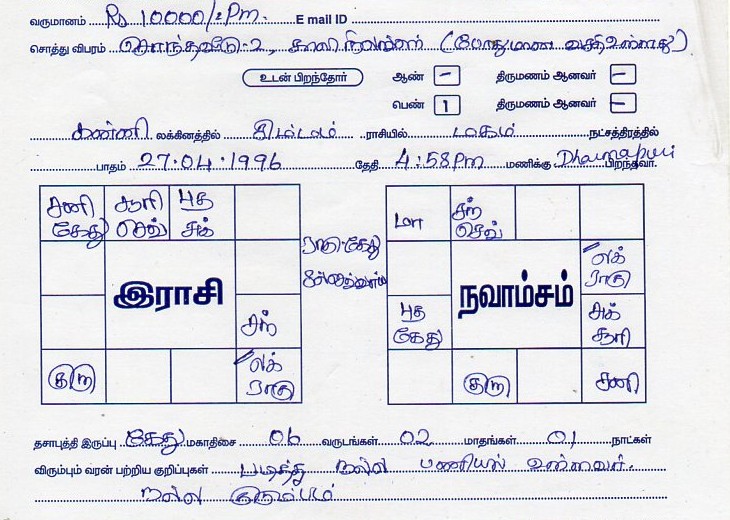 வருமானம் Rs 10000/=Pm. E mail ID
சொத்து விபரம் சொந்தவீடு-2, காலி நிலங்கள் (போதுமான வசதி உள்ளது)
உடன் பிறந்தோர் ஆண் - திருமணம் ஆனவர் -
பெண் 1 திருமணம் ஆனவர் -
கன்னி லக்கினத்தில் சிம்மம் ராசியில் மகம் நட்சத்திரத்தில்
பாதம் 27.04.1996 தேதி 4:58Pm மணிக்கு Dharmapuri பிறந்தவர்.
சனி கேது சூரி செவ் புத சுக்
ராகு-கேது
இராசி
சந்
குரு லக் ராகு
மா சந் செவ்
லக் ராகு
நவாம்சம்
புத கேது சுக் சூரி
குரு சனி
தசாபுத்தி இருப்பு கேது மகாதிசை 06 வருடங்கள் 02 மாதங்கள் 01 நாட்கள்
விரும்பும் வரன் பற்றிய குறிப்புகள் படித்து நல்ல பணியில் உள்ளவர்.
நல்ல குடும்பம்